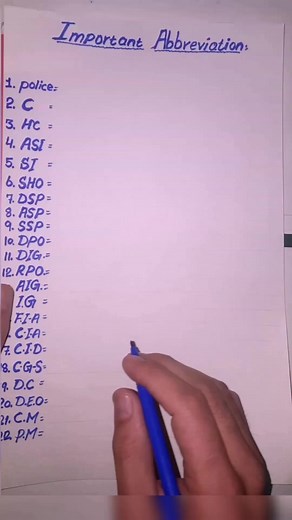 Important Abbreviation:
1. police=
2. C =
3. HC =
4. ASI =
5. SI =
6. SHO=
7. DSP=
8. ASP=
9. SSP=
10. DPO=
11. DIG.=
12. RPO.=
AIG.=
I.G =
F.I.A=
C.I.A=
7. C.I.D=
8. C.G.S=
9. D.C =
20. D.E.O=
21. C.M=
22. P.M=